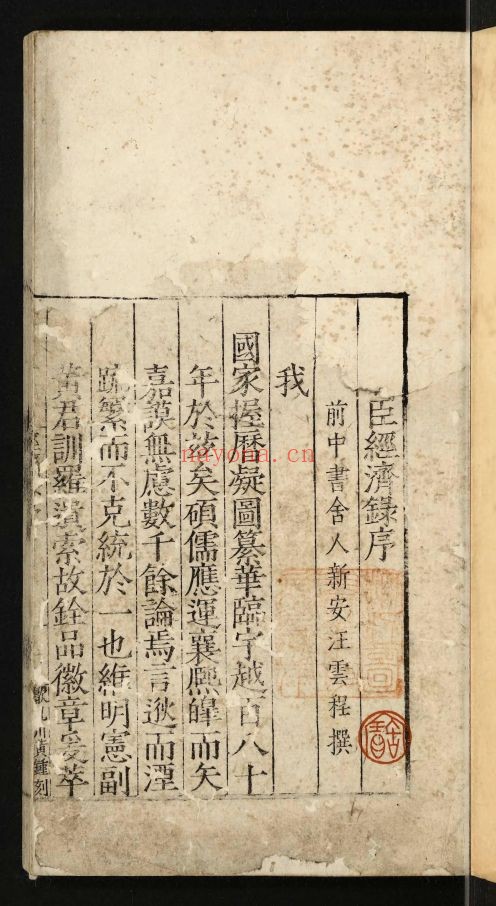 臣經濟錄序
前中書舍人新安汪雲程撰
我
國家握曆凝圖纂華臨宇越百八十
年於茲矣碩儒應運襄熈皡而矢
嘉謨無慮數千餘論焉言逖而湮
跡繁而不克統於一也維明憲副
黄君訓羅潰索故銓品徽章爰萃
黃鍾刻
nayona.cn